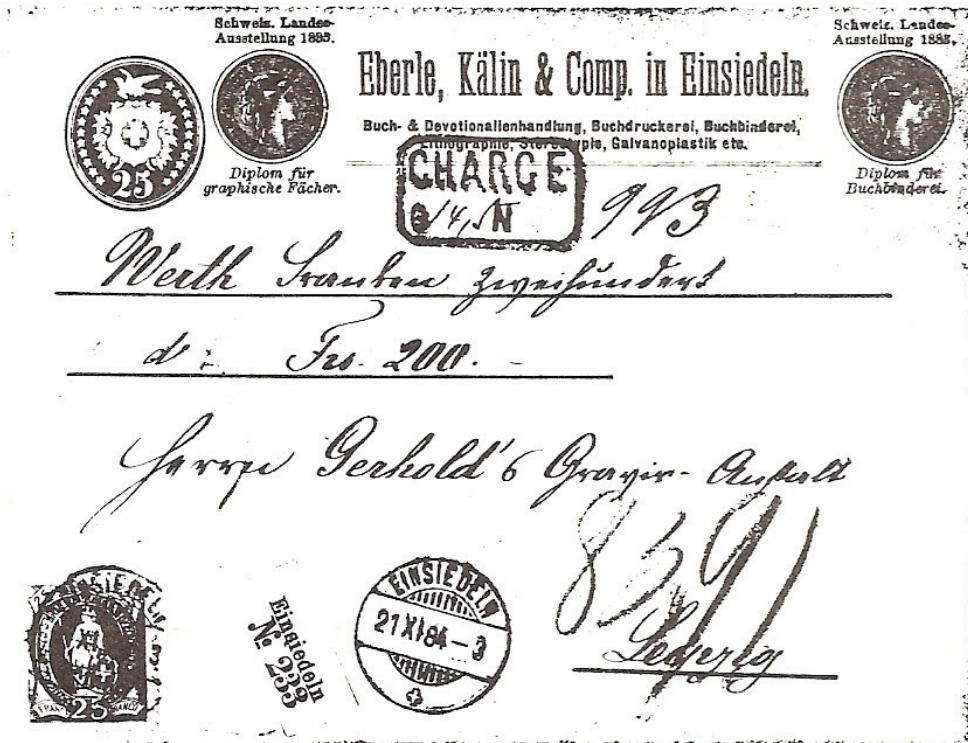 Schweiz. Landes-
Ausstellung 1883.
Schweiz. Landes-
Ausstellung 1883.
Eberle, Kälin & Comp. in Einsiedeln.
Buch- & Devotionalienhandlung, Buchdruckerei, Buchbinderei,
Lithographie, Stereotypie, Galvanoplastik etc.
25
Diplom für
graphische Fächer.
Diplom für
Buchbinderei.
CHARGE
N
993
Werth Franken zweihundert
d: Frs. 200.-
Herrn Gerhold's Gravir-Anstalt
Leipzig
EINSIEDELN
25
Einsiedeln
No 233
EINSIEDELN
21 XI 84-3